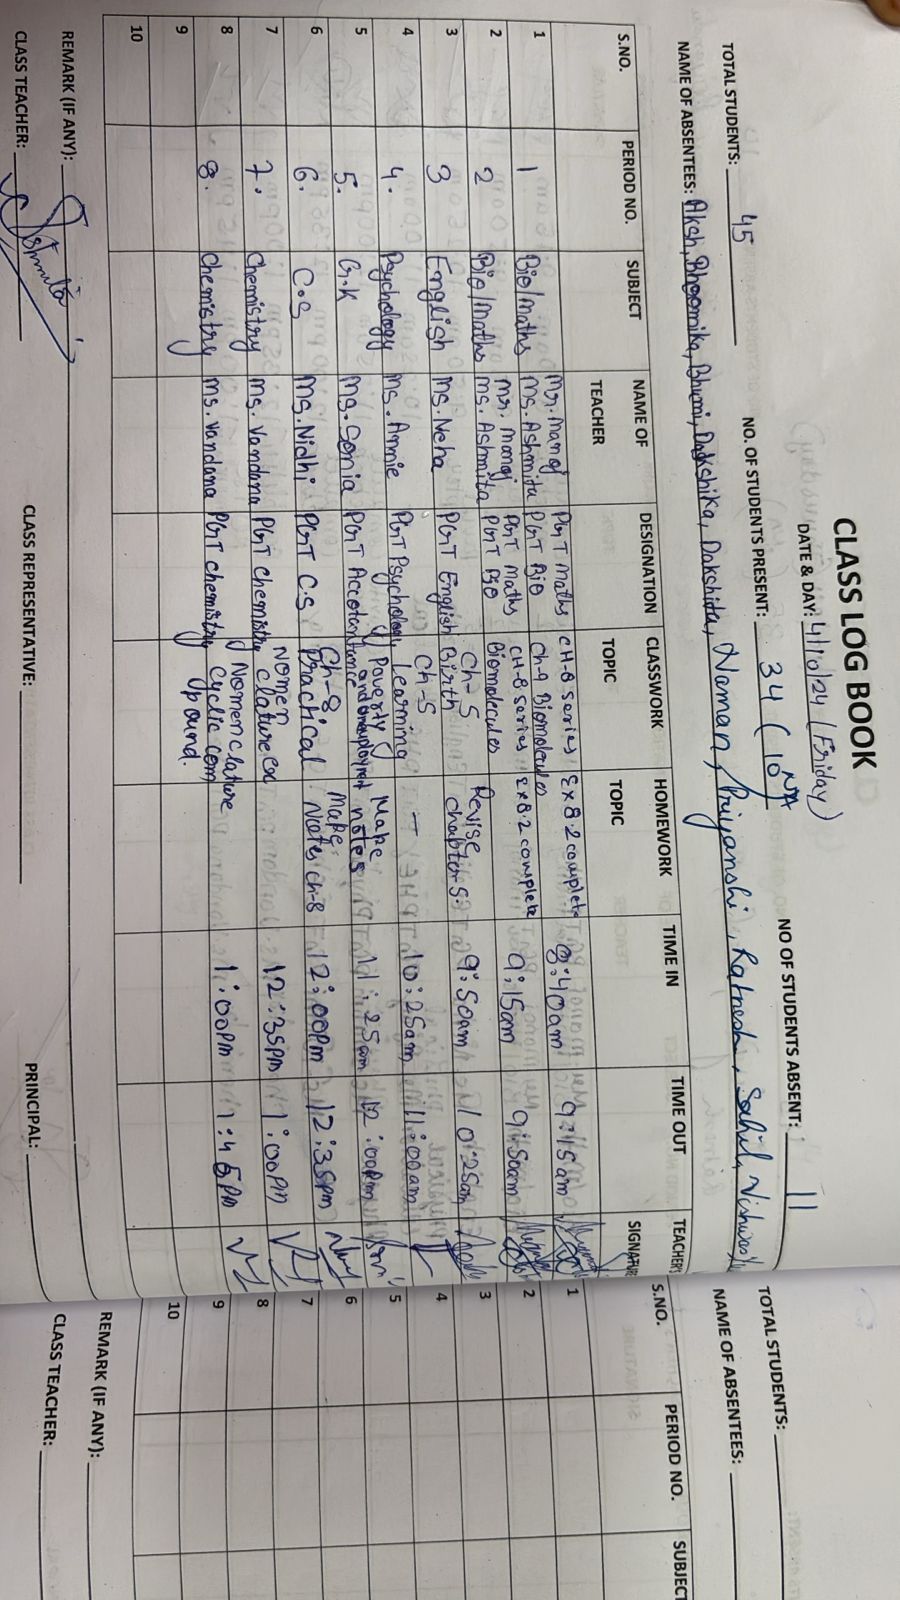 CLASS LOG BOOK
DATE & DAY: 4/10/24 (Friday)
TOTAL STUDENTS: 45 NO. OF STUDENTS PRESENT: 34 (10 NO OF STUDENTS ABSENT: 11
NAME OF ABSENTEES: Aksh, Bhoomika, Bhumi, Dakshika, Dakshita, Naman, Priyanshi, Ratnesh, Sahil, Vishwas
S.NO. PERIOD NO. SUBJECT NAME OF TEACHER DESIGNATION CLASSWORK TOPIC HOMEWORK TOPIC TIME IN TIME OUT TEACHER'S SIGNATURE
1 1 Bio/Maths Mr. Manoj Ms. Ashmita PGT Maths PGT Bio CH-8 series Ch-9 Biomolecules Ex 8.2 complete 8:40am 9:15am
2 2 Bio/Maths Mr. Manoj Ms. Ashmita PGT Maths PGT Bio CH-8 series Biomolecules Ex 8.2 complete 9:15am 9:50am
3 3 English Ms. Neha PGT English Ch-5 Birth Revise chapter-5. 9:50am 10:25am
4 4. Psychology Ms. Annie PGT Psychology Ch-5 Learning – 10:25am 11:00am
5 5. G.K Ms. Sonia PGT Poverty and Make notes 11:25am 12:00pm
6 6. C.S Ms. Nidhi PGT C.S Ch-8 Practical Make Notes ch-8 12:00pm 12:35pm
7 7. Chemistry Ms. Vandana PGT chemistry Nomen clature 12:35pm 1:00pm
8 8. Chemistry Ms. Vandana PGT chemistry Nomenclature Cyclic com pound. 1:00pm 1:45pm
9
10
REMARK (IF ANY):
CLASS TEACHER: Ashmita CLASS REPRESENTATIVE: PRINCIPAL:
TOTAL STUDENTS:
NAME OF ABSENTEES:
S.NO. PERIOD NO. SUBJECT
1
2
3
4
5
6
7
8
9
10
REMARK (IF ANY):
CLASS TEACHER: